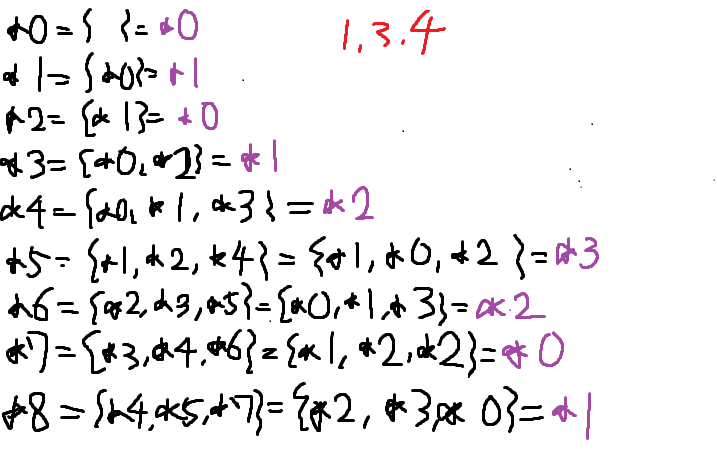 *0 = { } = *0
1.3.4
*1 = {*0} = *1
*2 = {*1} = *0
*3 = {*0, *2} = *1
*4 = {*0, *1, *3} = *2
*5 = {*1, *2, *4} = {*1, *0, *2} = *3
*6 = {*2, *3, *5} = {*0, *1, *3} = *2
*7 = {*3, *4, *6} = {*1, *2, *2} = *0
*8 = {*4, *5, *7} = {*2, *3, *0} = *1